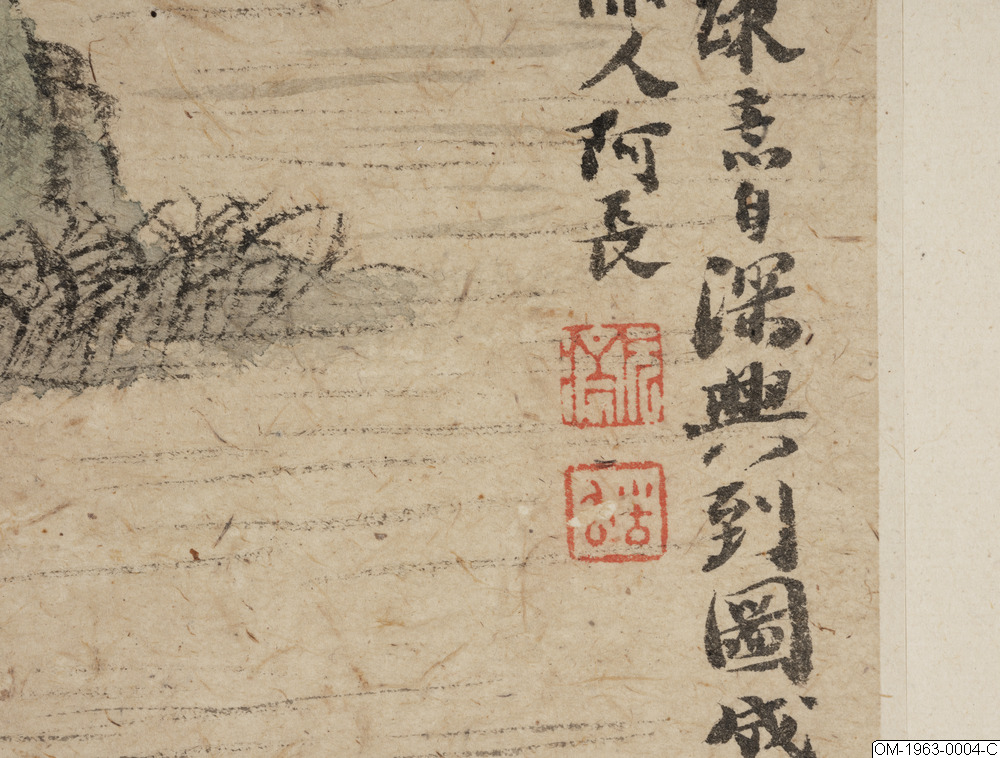 意自深興到圖成
人阿長
OM-1963-0004-C